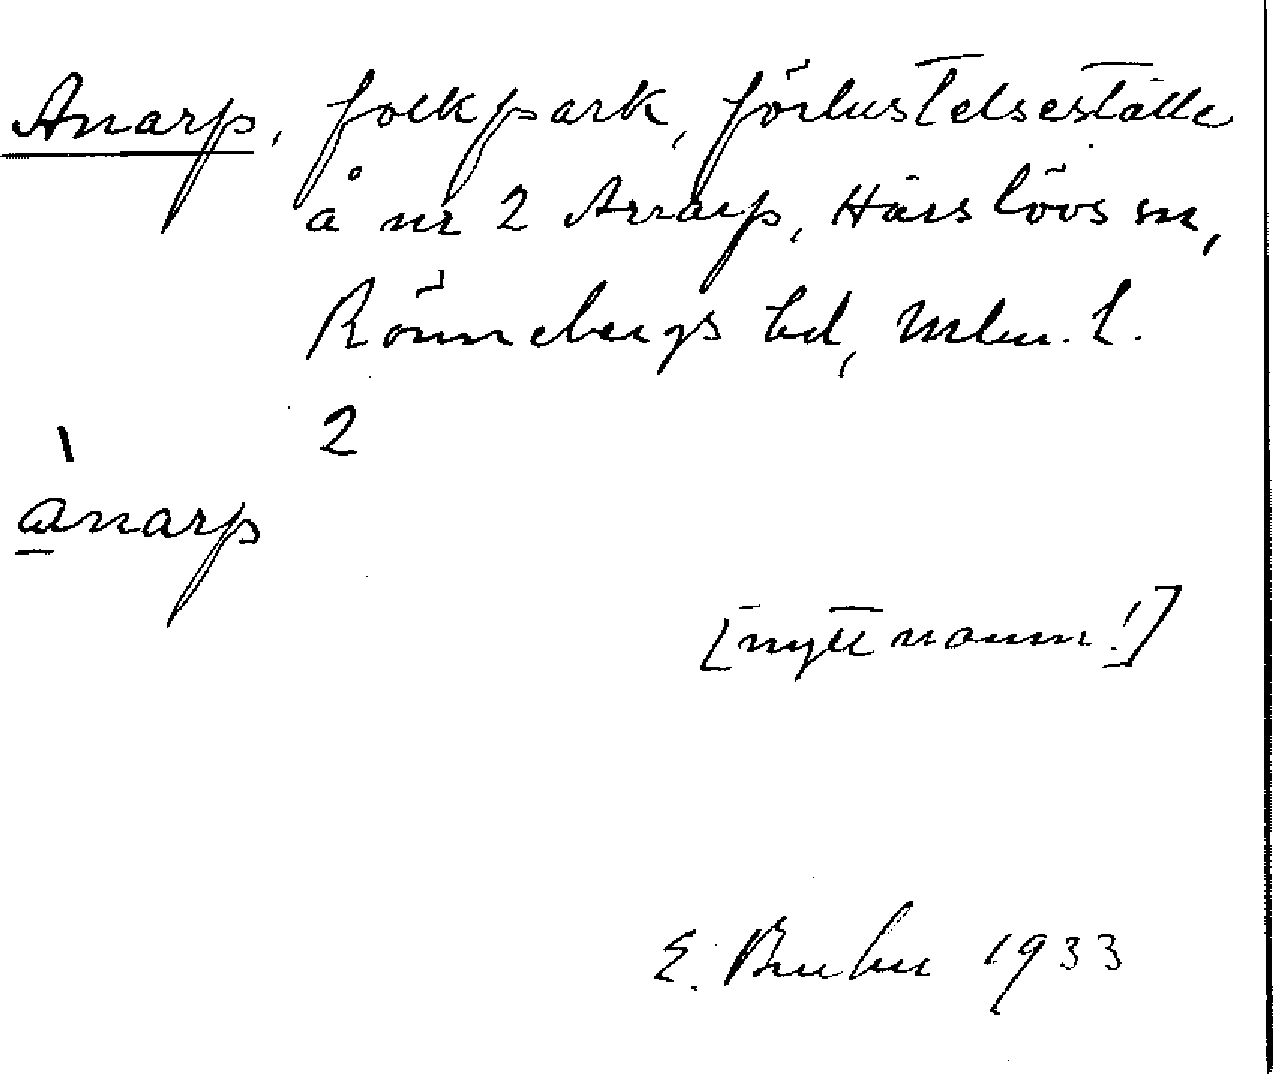 Anarp, folkpark, förlustelseställe
å nr 2 Arrarp, Härslövs sn,
Rönnebergs hd, Mlm. L.
2
ànarp
[nytt namn!]
E. 1933